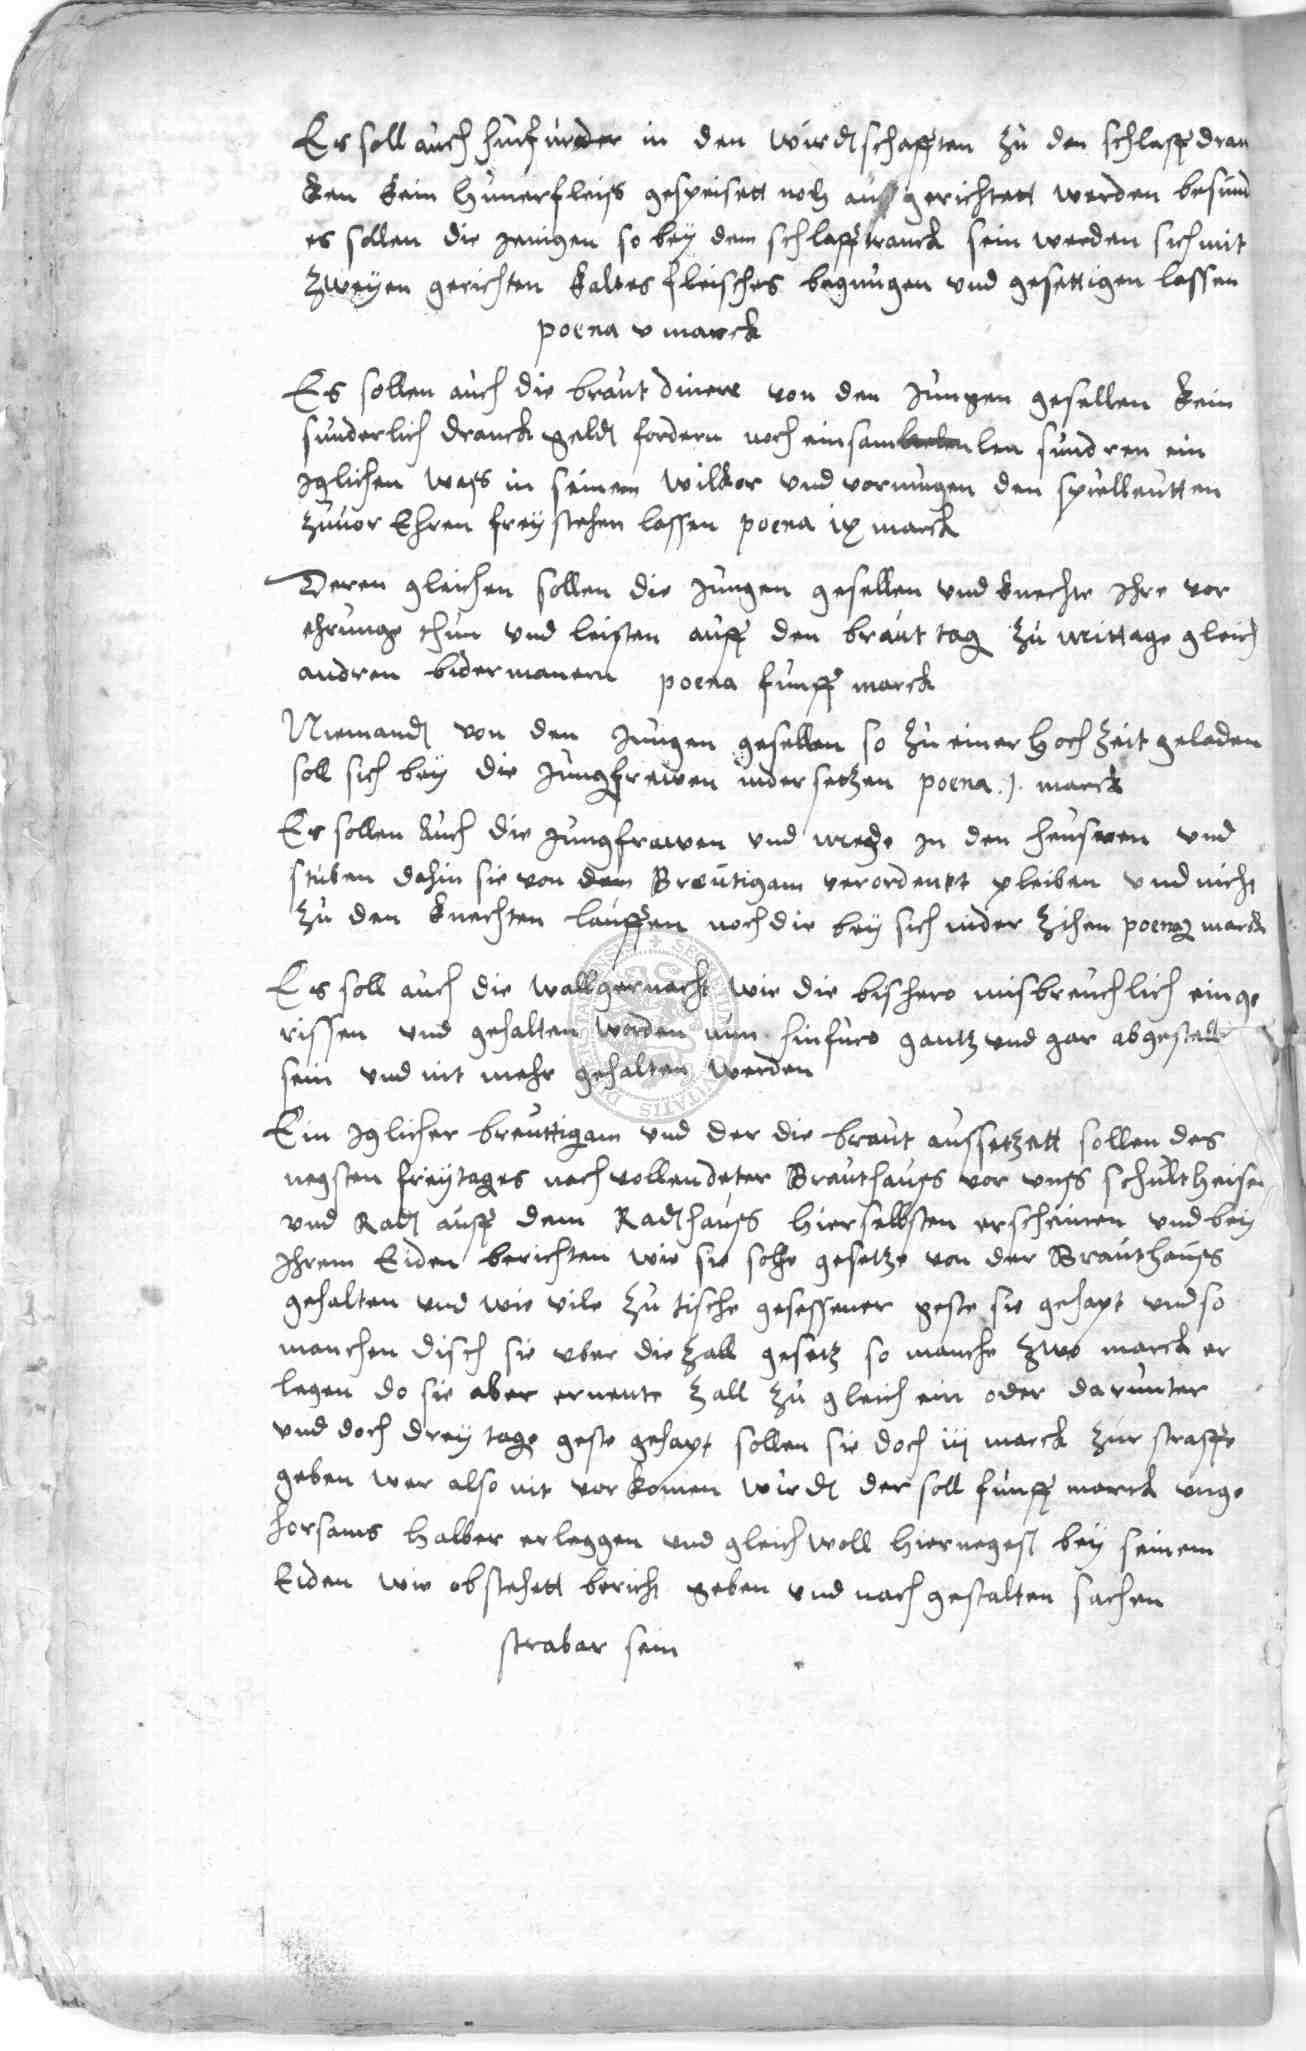 Es soll auch hinfurder in den wirdschafften zu den schlaffdran
cken kein hunerfleiss gespeisett noch aussgerichtett werden besund
es sollen die jenigen so bey dem schlafftranck sein werden sich mit
zweyen gerichten kaltes fleisches begnugen und gesettigen lassen
poena v marck
Es sollen auch die braut diner von den Jungen gesellen kein
sunderlich dranck geldt fordern noch einsam len sundren ein
Iglichen wass in seinem wilkor und vormugen den spielleutten
zuvor Ehren frey stehen lassen poena ix marck
Deren gleichen sollen die Jungen gesellen und knechte Ihre vor
ehrunge thun und leisten auff den braut tag zu mittage gleich
andren bidermanern poena funff marck
Niemandt von den Jungen gesellen so zu einer hochzeit geladen
soll sich bey die Jungfrewen nider setzen poena .j. marck
Es sollen auch die Jungfrawen und megde in den heuseren und
stuben dahin sie von dem Breutigam verordenet pleiben und nicht
zu den knechten lauffen noch die bey sich nider zihen poena marck
Es soll auch die wallgernacht wie die bishero misbreuchlich einge
rissen und gehalten worden nun hinfuro gantz und gar abgestalt
sein und nit mehr gehalten werden
Ein Iglicher breuttigam und der die braut aussetzett sollen des
negsten freytages nach vollendeter Brauthauss vor unss schultheisen
und Radt auff dem Radthauss hierselbsten erscheinen und bey
Ihrem Eiden berichten wie sie solche gesetze von der Brauthauss
gehalten und wie vile zu tische gesessener geste sie gehapt und so
manchen disch sie uber die zall gesetz so manche zwo marck er
legen do sie aber ernente zall zu gleich ein oder darunter
und doch drey tage geste gehapt sollen sie doch iij marck zur straffe
geben wer also nit vorkomen wurdt der soll funff marck unge
horsams halber erleggen und gleichwoll hiernegest bey seinem
Eiden wie obstehett bericht geben und nach gestalten sachen
strabar sein